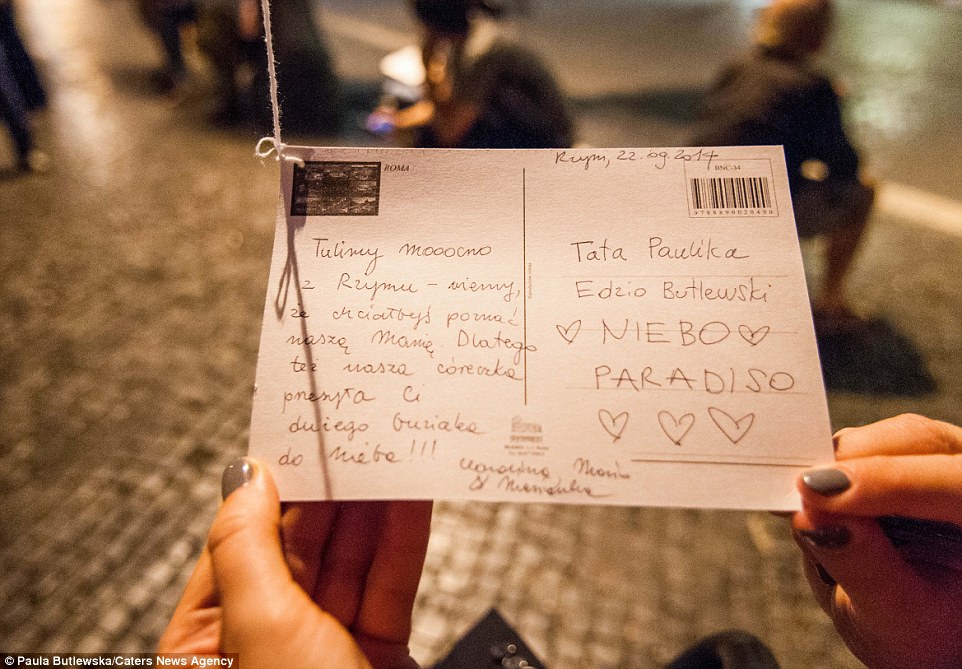 ROMA
Rzym, 22.09.2014
BNC-34
Tulimy mooocno
z Rzymu - wiemy,
że chciałbyś poznać
naszą Manię. Dlatego
też nasza córeczka
przesyła Ci
dużego buziaka
do nieba!!!
Mania
Tata Paulika
Edzio Butlewski
NIEBO
PARADISO
© Paula Butlewska/Caters News Agency